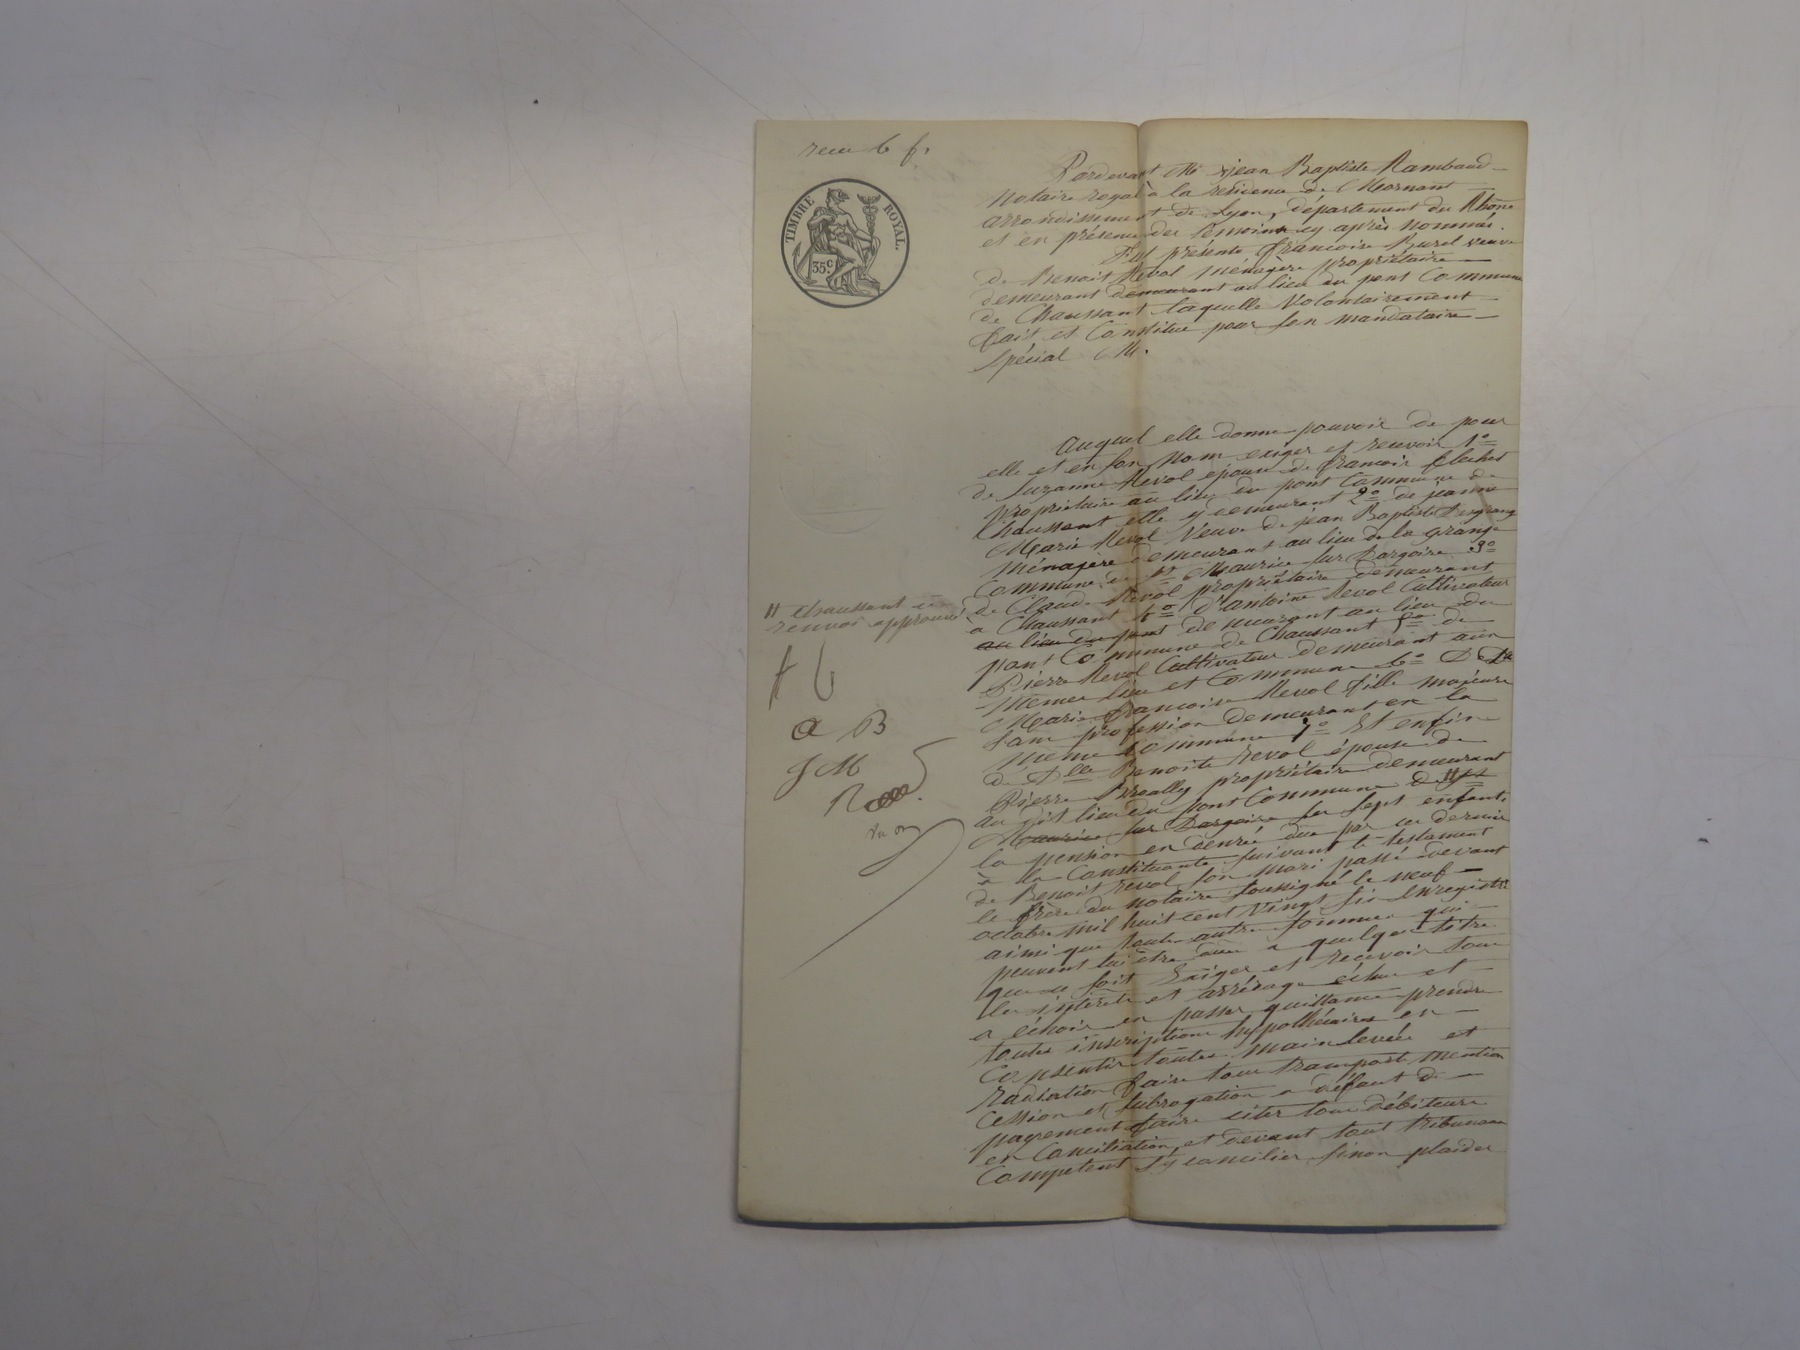 recu 6 f.
TIMBRE ROYAL.
35 c.
Pardevant Me jean Baptiste Rambaud
Notaire royal à la residence de Mornant
arrondissement de Lyon, département du Rhône
et en présence des témoins cy après nommés.
Fut présente francoise Burel veuve
de Benoit Revol ménagère propriétaire
demeurant demeurant au lieu du pont Commune
de Chaussant laquelle Volontairement
fait et Constitue pour son mandataire
Spécial M.
Auquel elle donne pouvoir de pour
elle et en son Nom exiger et recevoir 1°
de Suzanne Revol epouse de francois flechet
propriétaire au lieu du pont Commune de
Chaussant elle y demeurant 2° de jeanne
Marie Revol Veuve de jean Baptiste
ménagère demeurant au lieu de la grange
Commune de St Maurice sur Dargoire 3°
de Claude Revol propriétaire demeurant
a Chaussant 4° d'antoine Revol Cultivateur
au lieu du pont demeurant au lieu du
pont Commune de Chaussant 5° de
Pierre Revol Cultivateur demeurant aux
memes lieu et Commune 6° de Dlle
Marie francoise Revol fille majeure
sans profession demeurant en la
meme Commune 7° Et enfin
de Dlle Benoite Revol épouse de
Pierre propriétaire demeurant
au dit lieu du pont Commune de
Maurice sur Dargoire ses sept enfants
la pension en denrée due par ces derniers
à la Constituante suivant le testament
de Benoit revol son mari passé devant
le frère du notaire soussigné le neuf
octobre mil huit cent vingt six Enregistré
ainsi que toute autre sommes qui
peuvent lui être dues a quelque titre
que ce soit Exiger et recevoir tous
les intérêts et arrérages échus et
a échoir en passer quittance prendre
toutes inscriptions hypothécaires en
Consentir toutes mainlevée et
radiation faire tous transports mention
Cession et subrogation a défaut de
payement faire citer tous débiteurs
en Conciliation, et devant tout tribunaux
Competent s'y concilier sinon plaider
# Chaussant
renvoi approuvé
a B
J M
R